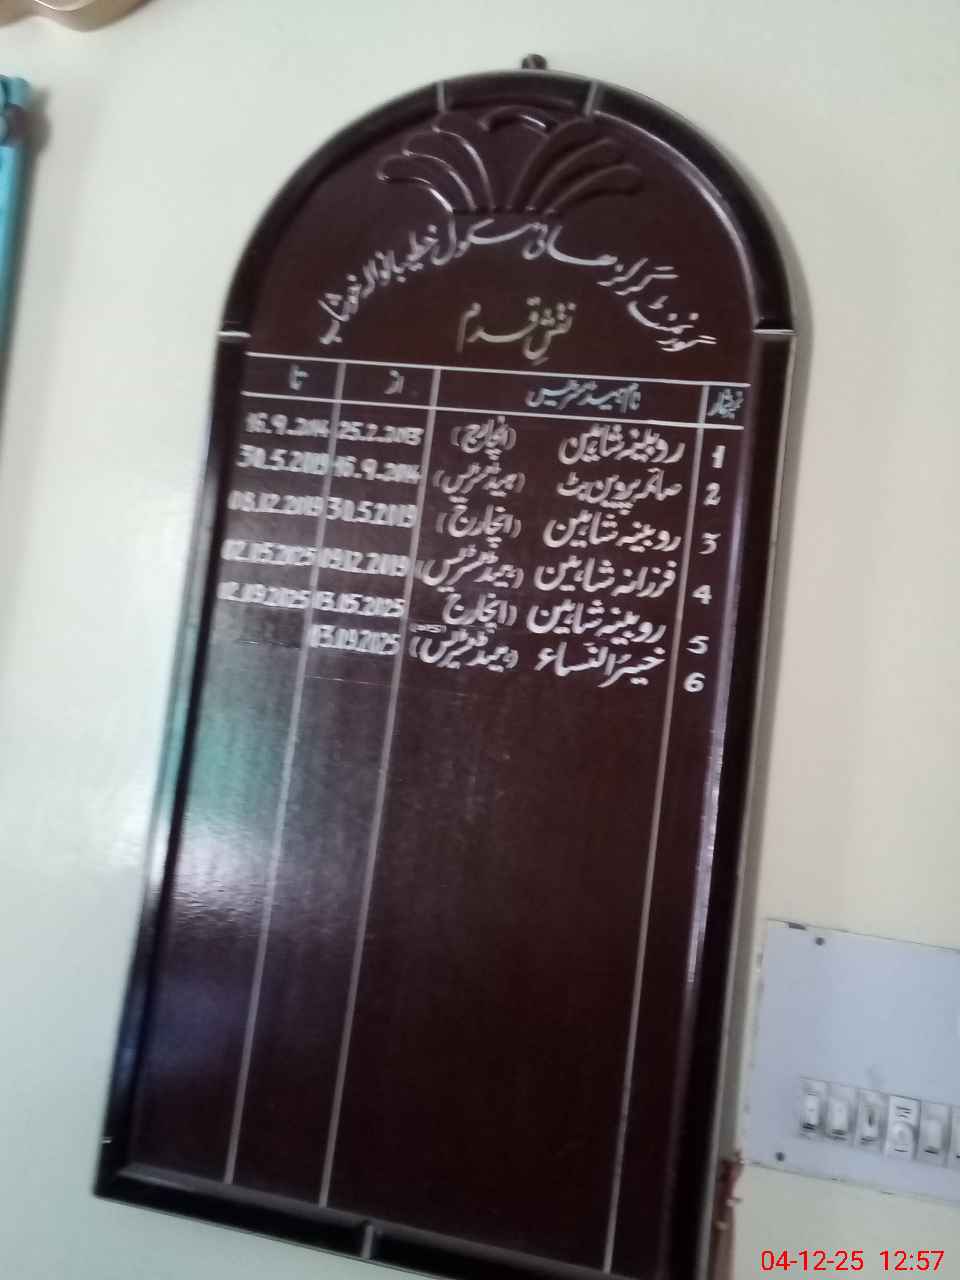 گورنمنٹ گرلز ھائی سکول خطیبانوالہ خوشاب
نقشِ قدم
نمبرشمار نام ہیڈمسٹریس از تا
1 روبینہ شاہین (انچارج) 25.2.2013 16.9.2014
2 صائمہ پروین بٹ (ہیڈمسٹریس) 16.9.2014 30.5.2019
3 روبینہ شاہین (انچارج) 30.5.2019 08.12.2019
4 فرزانہ شاہین (ہیڈمسٹریس) 09.12.2019 02.05.2025
5 روبینہ شاہین (انچارج) 03.05.2025 02.09.2025
6 خیرالنساء (ہیڈمسٹریس) 03.09.2025
04-12-25 12:57